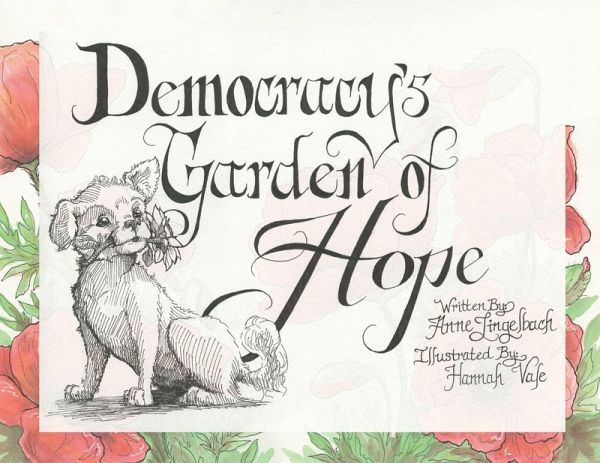 Democracy's
Garden of
Hope
Written By:
Anne Lingelbach
Illustrated By:
Hannah Vale